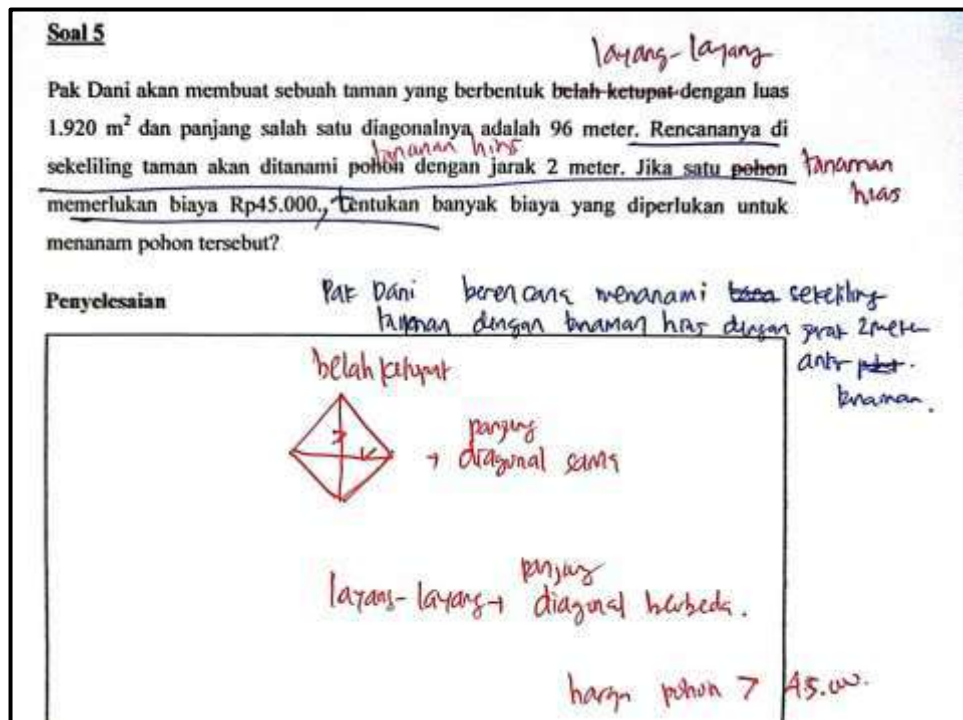 Soal 5
layang-layang
Pak Dani akan membuat sebuah taman yang berbentuk belah ketupat dengan luas
1.920 m² dan panjang salah satu diagonalnya adalah 96 meter. Rencananya di
tanaman hias
sekeliling taman akan ditanami pohon dengan jarak 2 meter. Jika satu pohon tanaman
hias
memerlukan biaya Rp45.000,, tentukan banyak biaya yang diperlukan untuk
menanam pohon tersebut?
Penyelesaian
Pak Dani berencana menanami sekeliling
taman dengan tanaman hias dengan jarak 2 meter
antr
tanaman.
belah ketupat
panjang
→ diagonal sama
panjang
layang-layang → diagonal berbeda.
harga pohon > 45.000.